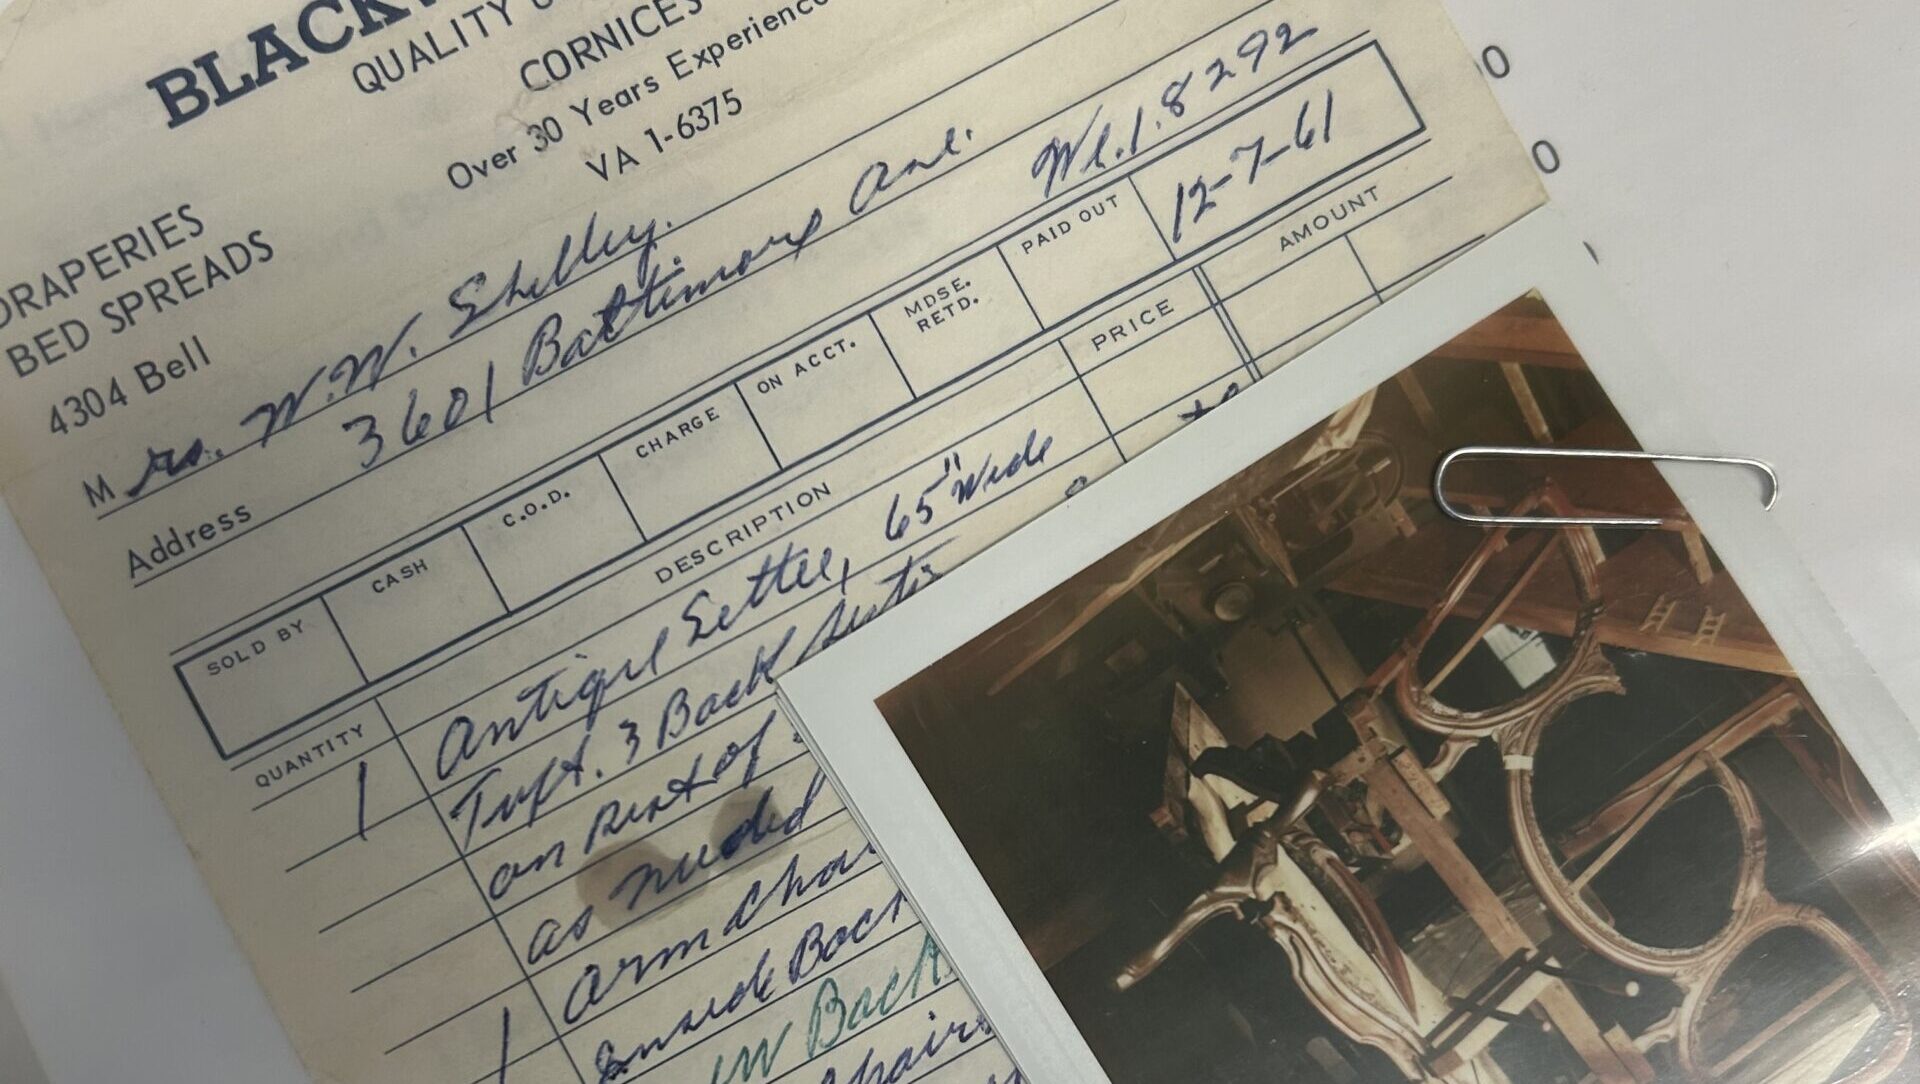 BLACK
QUALITY
CORNICES
Over 30 Years Experience
VA 1-6375
DRAPERIES
BED SPREADS
4304 Bell
Mrs. W.W. Shelley. We.1.8292
Address 3601 Baltimore Ave.
12-7-61
SOLD BY CASH C.O.D. CHARGE ON ACCT. MDSE. RETD. PAID OUT
QUANTITY DESCRIPTION PRICE AMOUNT
1 Antique Settee, 65" Wide
Tuft. 3 Back
on
as needed
1 Arm
Inside Back
Back